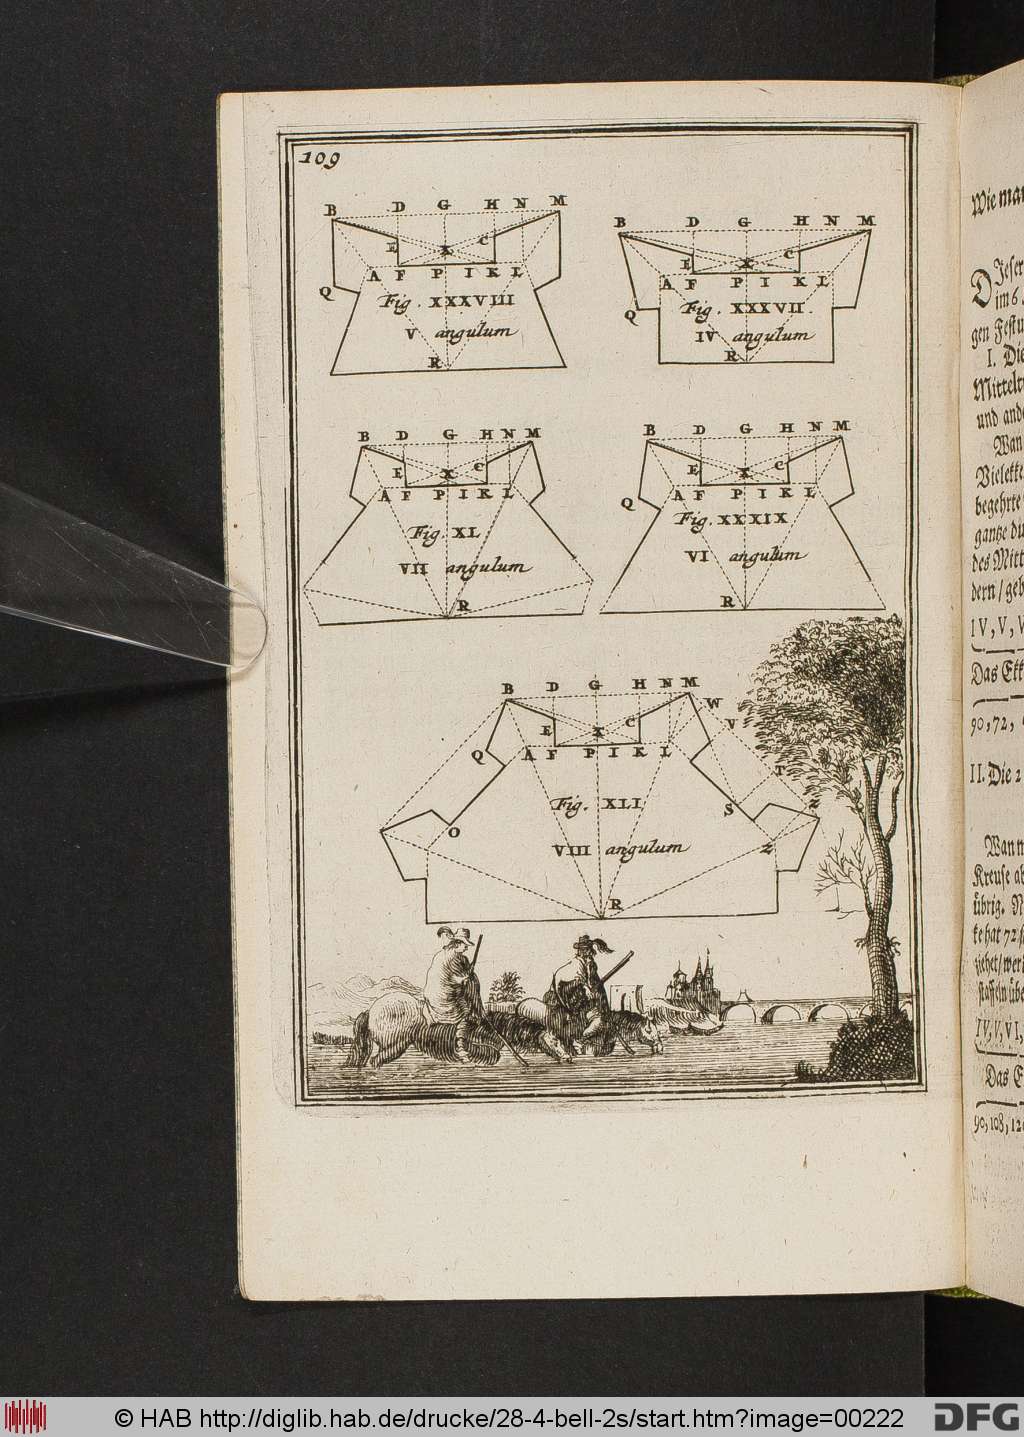 109
B D G H N M
E X C
A F P I K L
Q
Fig. XXXVIII
V angulum
R
B D G H N M
E X C
A F P I K L
Q
Fig. XXXVII.
IV angulum
R
B D G H N M
E X C
A F P I K L
Fig. XL
VII angulum
R
B D G H N M
E X C
Q A F P I K L
Fig. XXXIX
VI angulum
R
B D G H N M
W
E X C V
Q A F P I K L
T
Fig. XLI
S
O
VIII angulum Z
R
Wie man
DJeser
im 6.
gen Festu
I. Die
Mitteltr
und ande
Wan
Vielekke
begehrte
gantze
des Mitt
dern / geb
IV, V, V
Das Ekk
90, 72,
II. Die 2
Wann
Kreuse ab
übrig. N
ke hat 72
ziehet / wer
staffeln übe
IV, V, VI,
Das E
90, 108, 12
© HAB http://diglib.hab.de/drucke/28-4-bell-2s/start.htm?image=00222
DFG